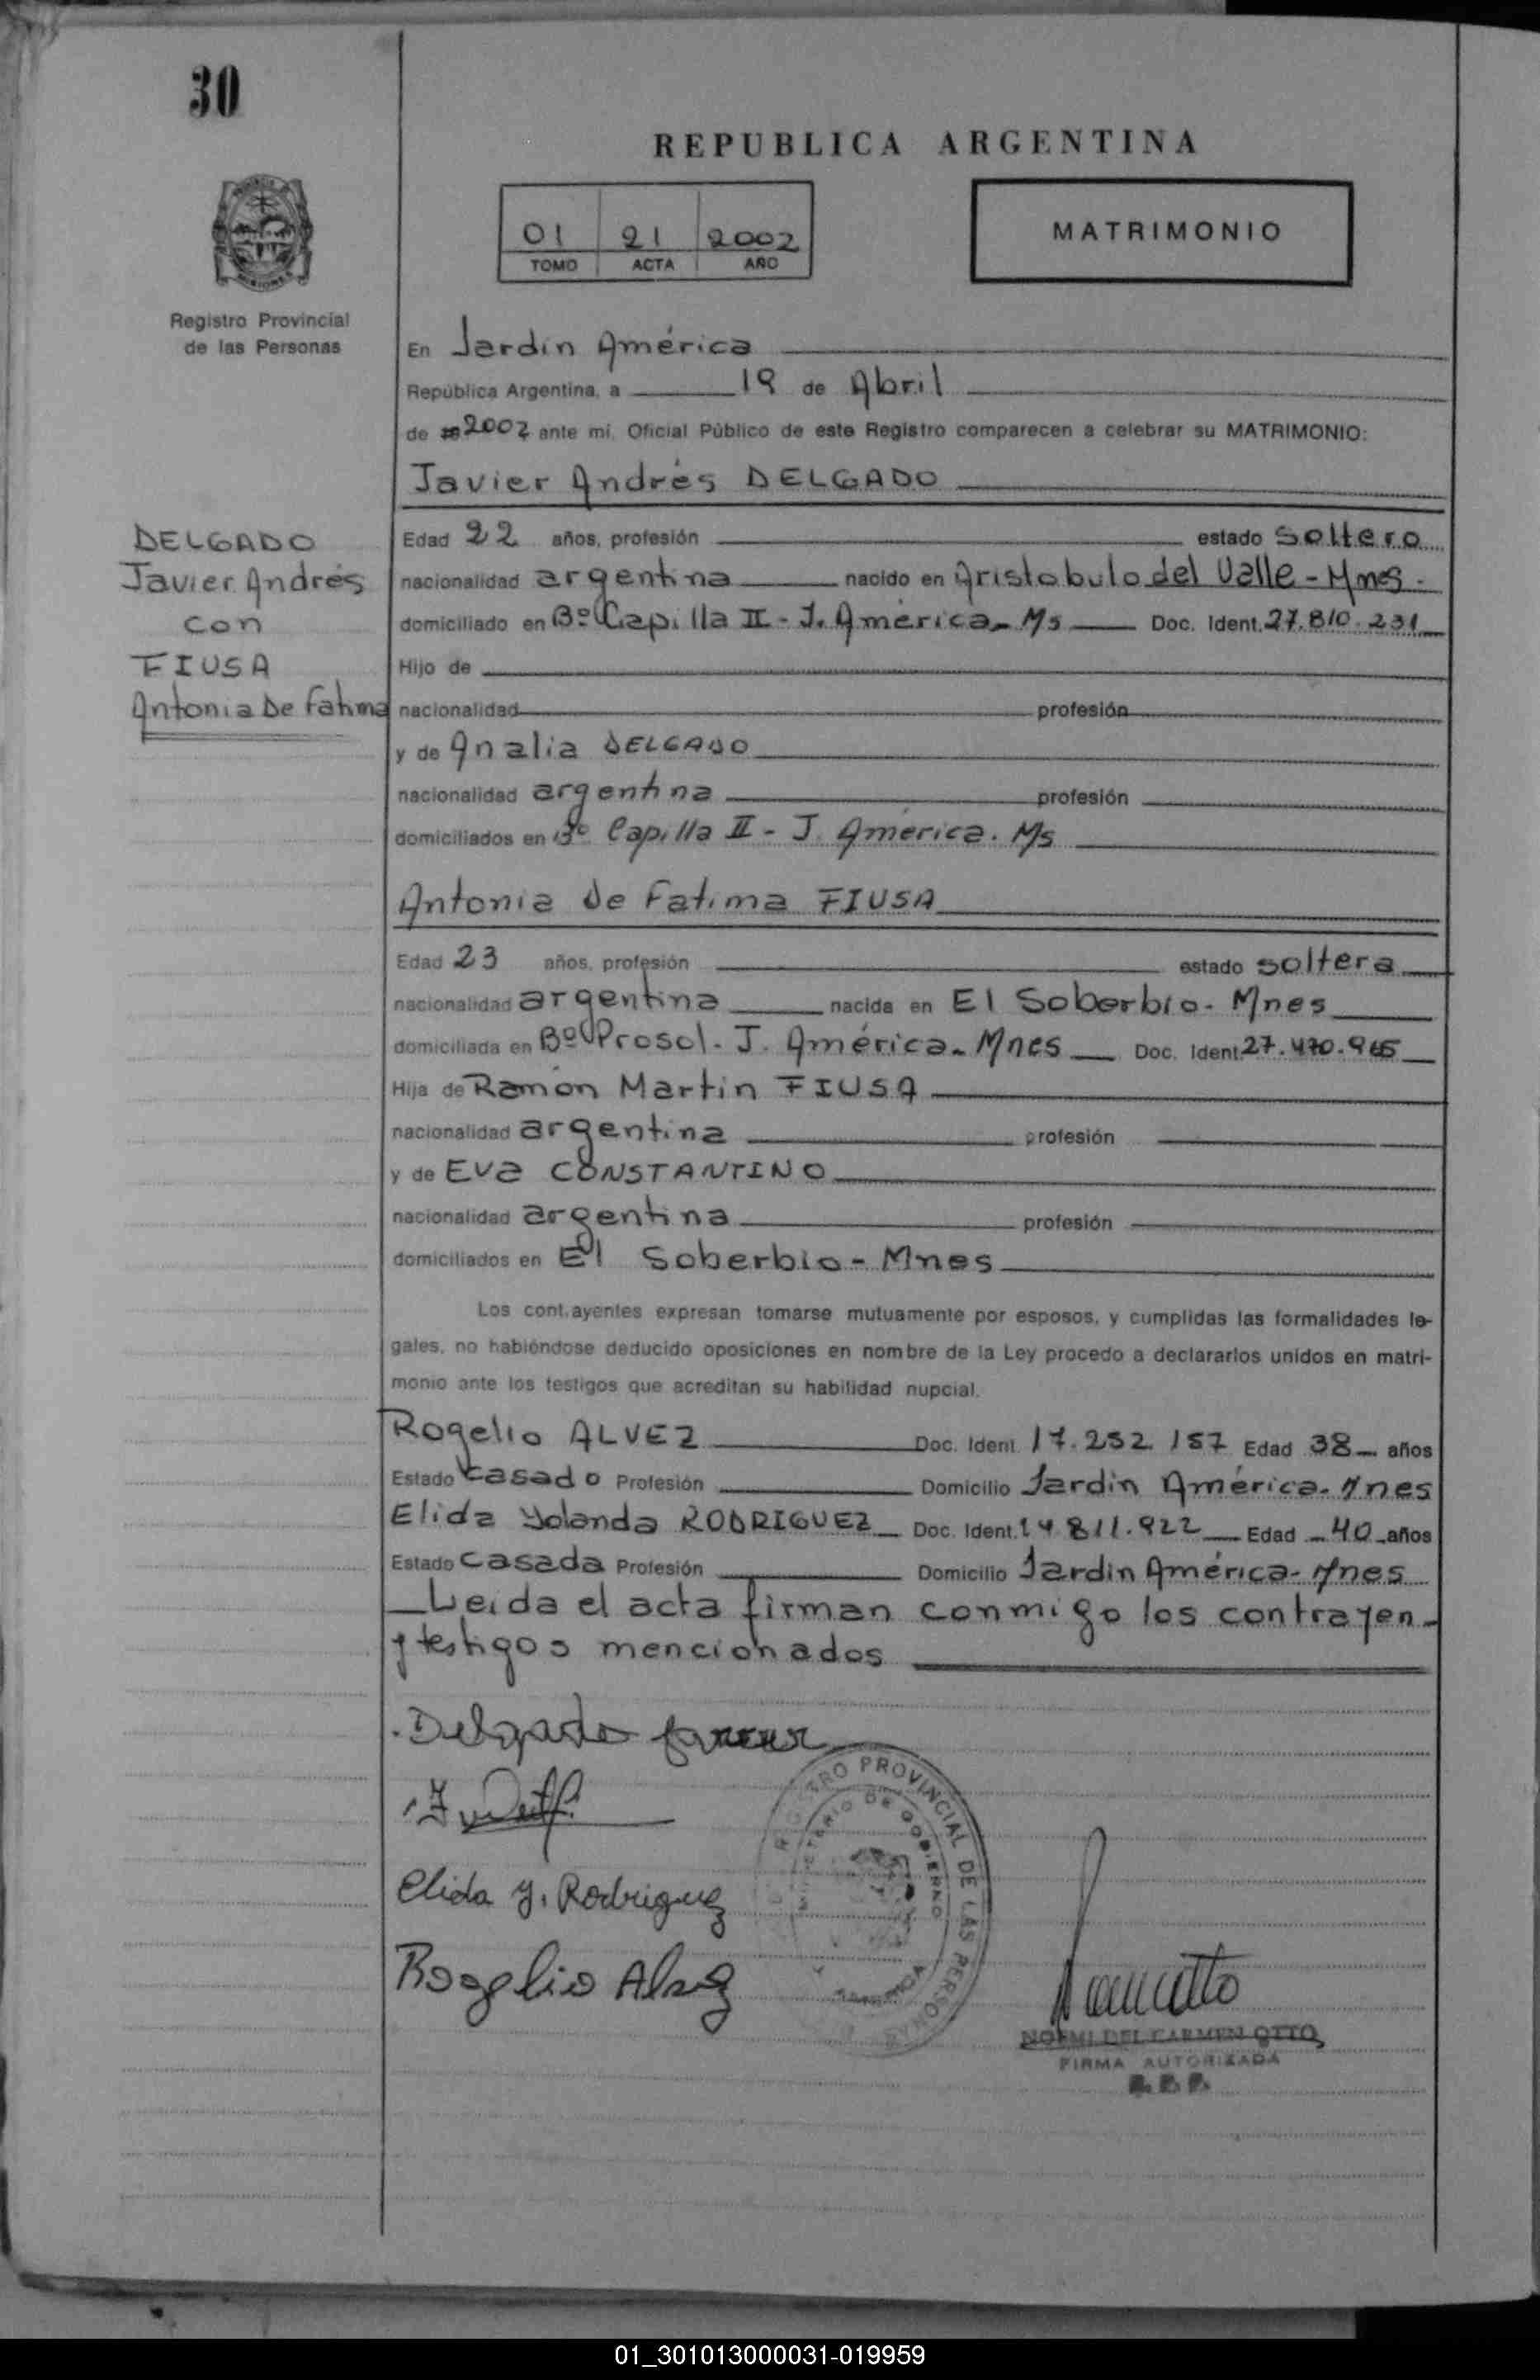 30
REPUBLICA ARGENTINA
01 21 2002
TOMO ACTA AÑO
MATRIMONIO
Registro Provincial
de las Personas
En Jardín América
República Argentina, a 19 de Abril
de 2002 ante mí, Oficial Público de este Registro comparecen a celebrar su MATRIMONIO:
Javier Andrés DELGADO
DELGADO
Javier Andrés
con
FIUSA
Antonia De Fatima
Edad 22 años, profesión estado soltero
nacionalidad argentina nacido en Aristobulo del Valle - Mnes.
domiciliado en Bº Capilla II - J. América - Ms Doc. Ident. 27.810.231
Hijo de
nacionalidad profesión
y de Analia DELGADO
nacionalidad argentina profesión
domiciliados en Bº Capilla II - J. América. Ms
Antonia De Fatima FIUSA
Edad 23 años, profesión estado soltera
nacionalidad argentina nacida en El Soberbio - Mnes
domiciliada en Bº Prosol - J. América - Mnes Doc. Ident. 27.470.965
Hija de Ramón Martin FIUSA
nacionalidad argentina profesión
y de Eva CONSTANTINO
nacionalidad argentina profesión
domiciliados en El Soberbio - Mnes
Los contrayentes expresan tomarse mutuamente por esposos, y cumplidas las formalidades le-
gales, no habiéndose deducido oposiciones en nombre de la Ley procedo a declararlos unidos en matri-
monio ante los testigos que acreditan su habilidad nupcial.
Rogelio ALVEZ Doc. Ident. 17.252.157 Edad 38 años
Estado casado Profesión Domicilio Jardín América - Mnes
Elida Yolanda RODRIGUEZ Doc. Ident. 14.811.922 Edad 40 años
Estado casada Profesión Domicilio Jardín América - Mnes
Leída el acta firman conmigo los contrayen-
y testigos mencionados
Delgado Javier
Elida Y. Rodriguez
Rogelio Alvez
REGISTRO PROVINCIAL DE LAS PERSONAS
MINISTERIO DE GOBIERNO
AMERICA
NOEMI DEL CARMEN OTTO
FIRMA AUTORIZADA
01_301013000031-019959